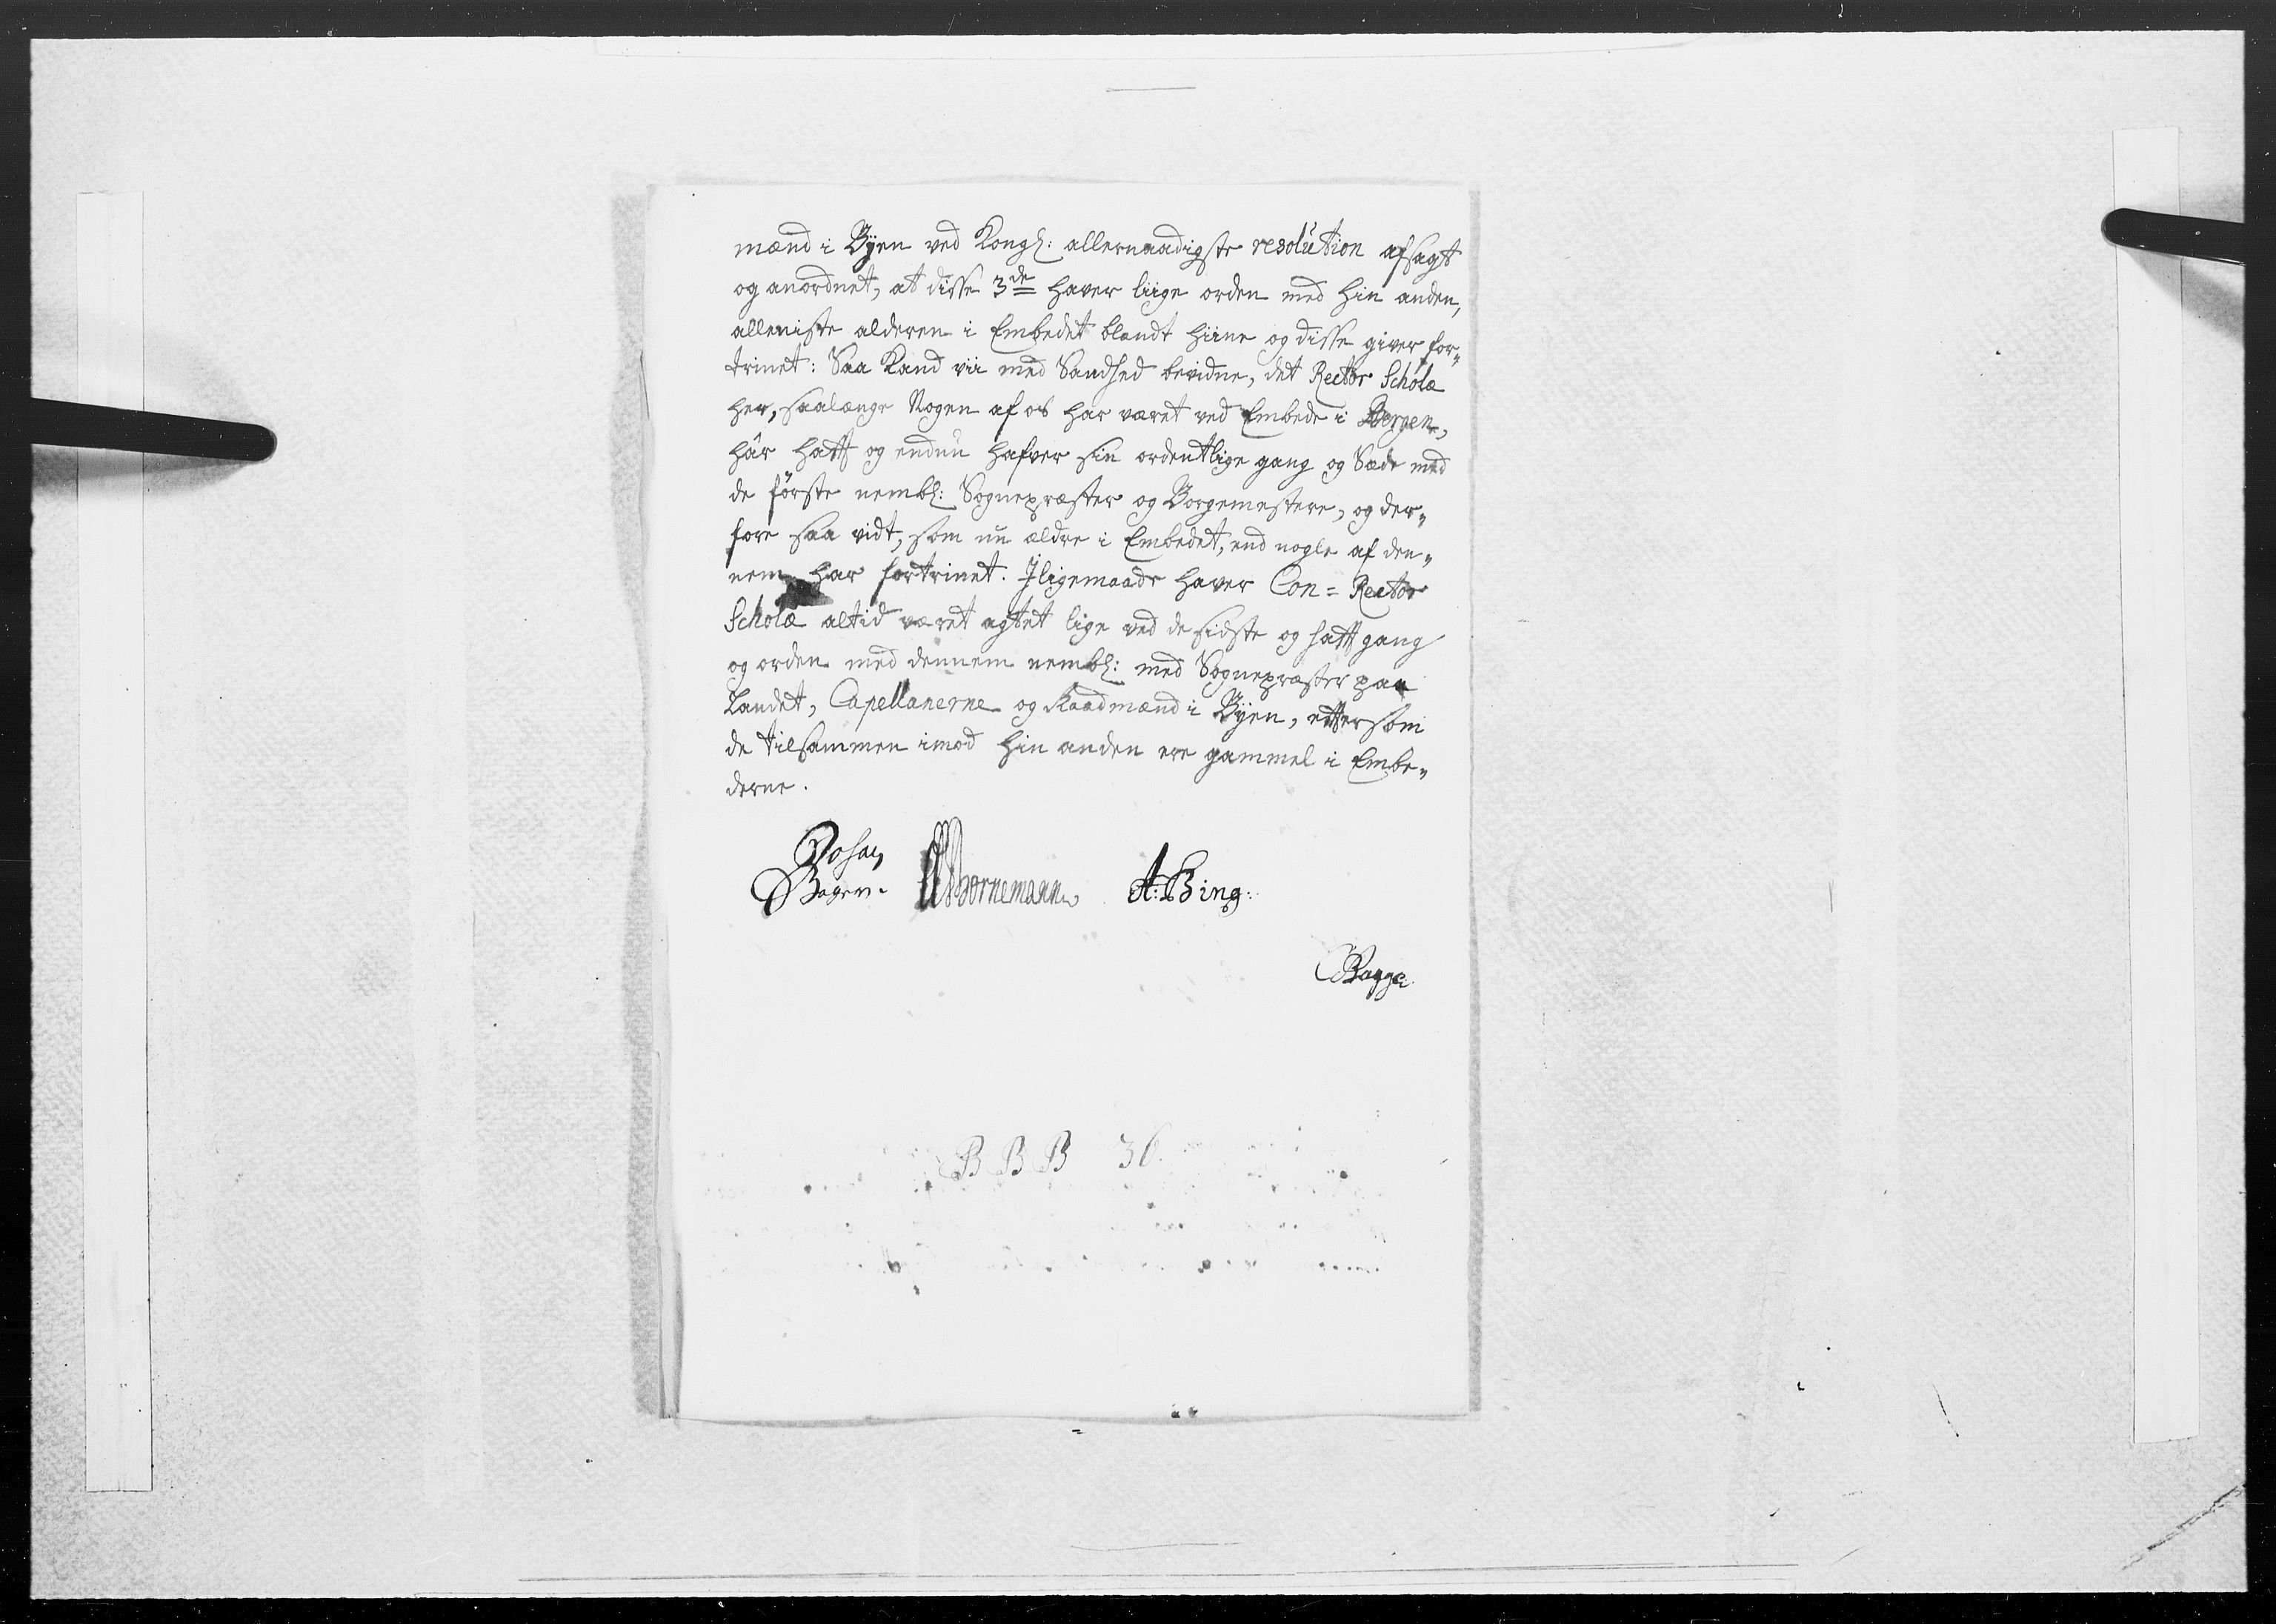 mænd i Byen ved Kongl: allernaadigste resolution afsagt
og anordnet, at disse 3de haver liige orden med hin anden,
alleniste alderen i Embedet blandt hiine og disse giver for„
trinet: Saa kand vii med Sandhed bevidne, det Rector Scholæ
her, saalænge Nogen af os har været ved Embede i Bergen,
hâr hafft og endnu hafver sin ordentlige gang og Sæde med
de förste nembl: Sognepræster og Borgemestere, og der„
fore saa vidt, som nu ældre i Embedet, end nogle af den„
nem har fortrinet. Iligemaade haver Con= Rector
Scholæ altid været agtet lige ved de sidste og hafft gang
og orden med dennem nembl: med Sognepræster paa
Landet, Capellanerne og Raadmænd i Byen, effter som
de tilsammen imod hin anden ere gammel i Embe„
derne.
Johan
Bornemann A: Bing:
Bagge
B B B 36.